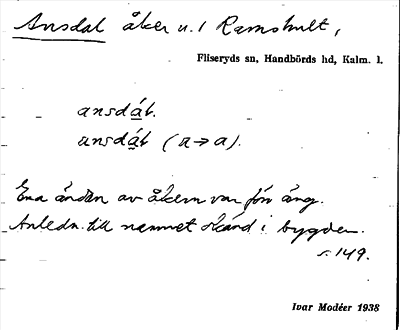 Ansdal åker u. / Ramshult,
Fliseryds sn, Handbörds hd, Kalm. l.
ansdáł.
ansdáł (a→a).
Ena ändan av åkern var förr äng.
Anledn. till namnet okänd i bygden.
s. 149.
Ivar Modéer 1938